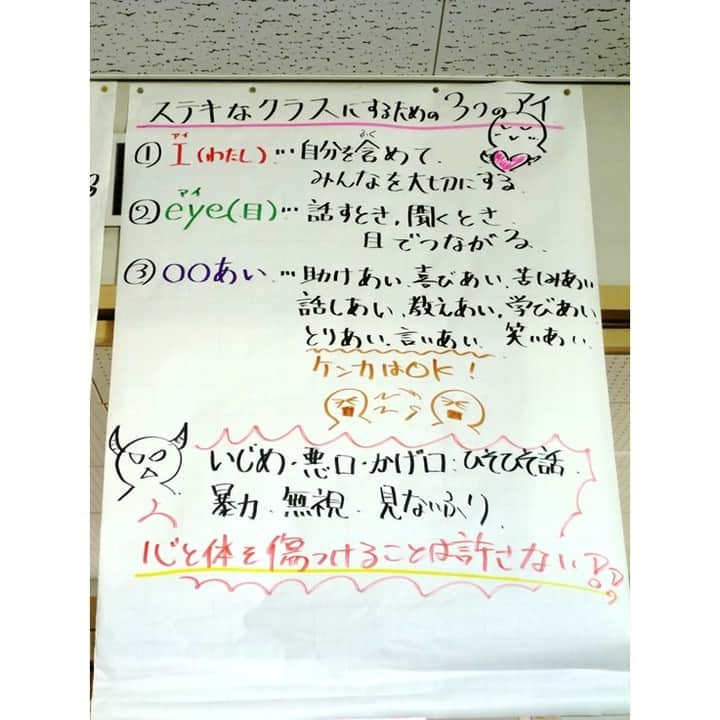 ステキなクラスにするための3つのアイ
アイ
① I(わたし)…自分を含めて、
ふく
みんなを大切にする。
アイ
② eye(目)…話すとき,聞くとき
目でつながる。
③ ○○あい…助けあい、喜びあい、苦しみあい
話しあい、教えあい,学びあい
とりあい、言いあい、笑いあい、
ケンカはOK!
いじめ・悪口・かげ口:ひそひそ話、
暴力、無視、見ないふり、
心と体を傷つけることは許さない